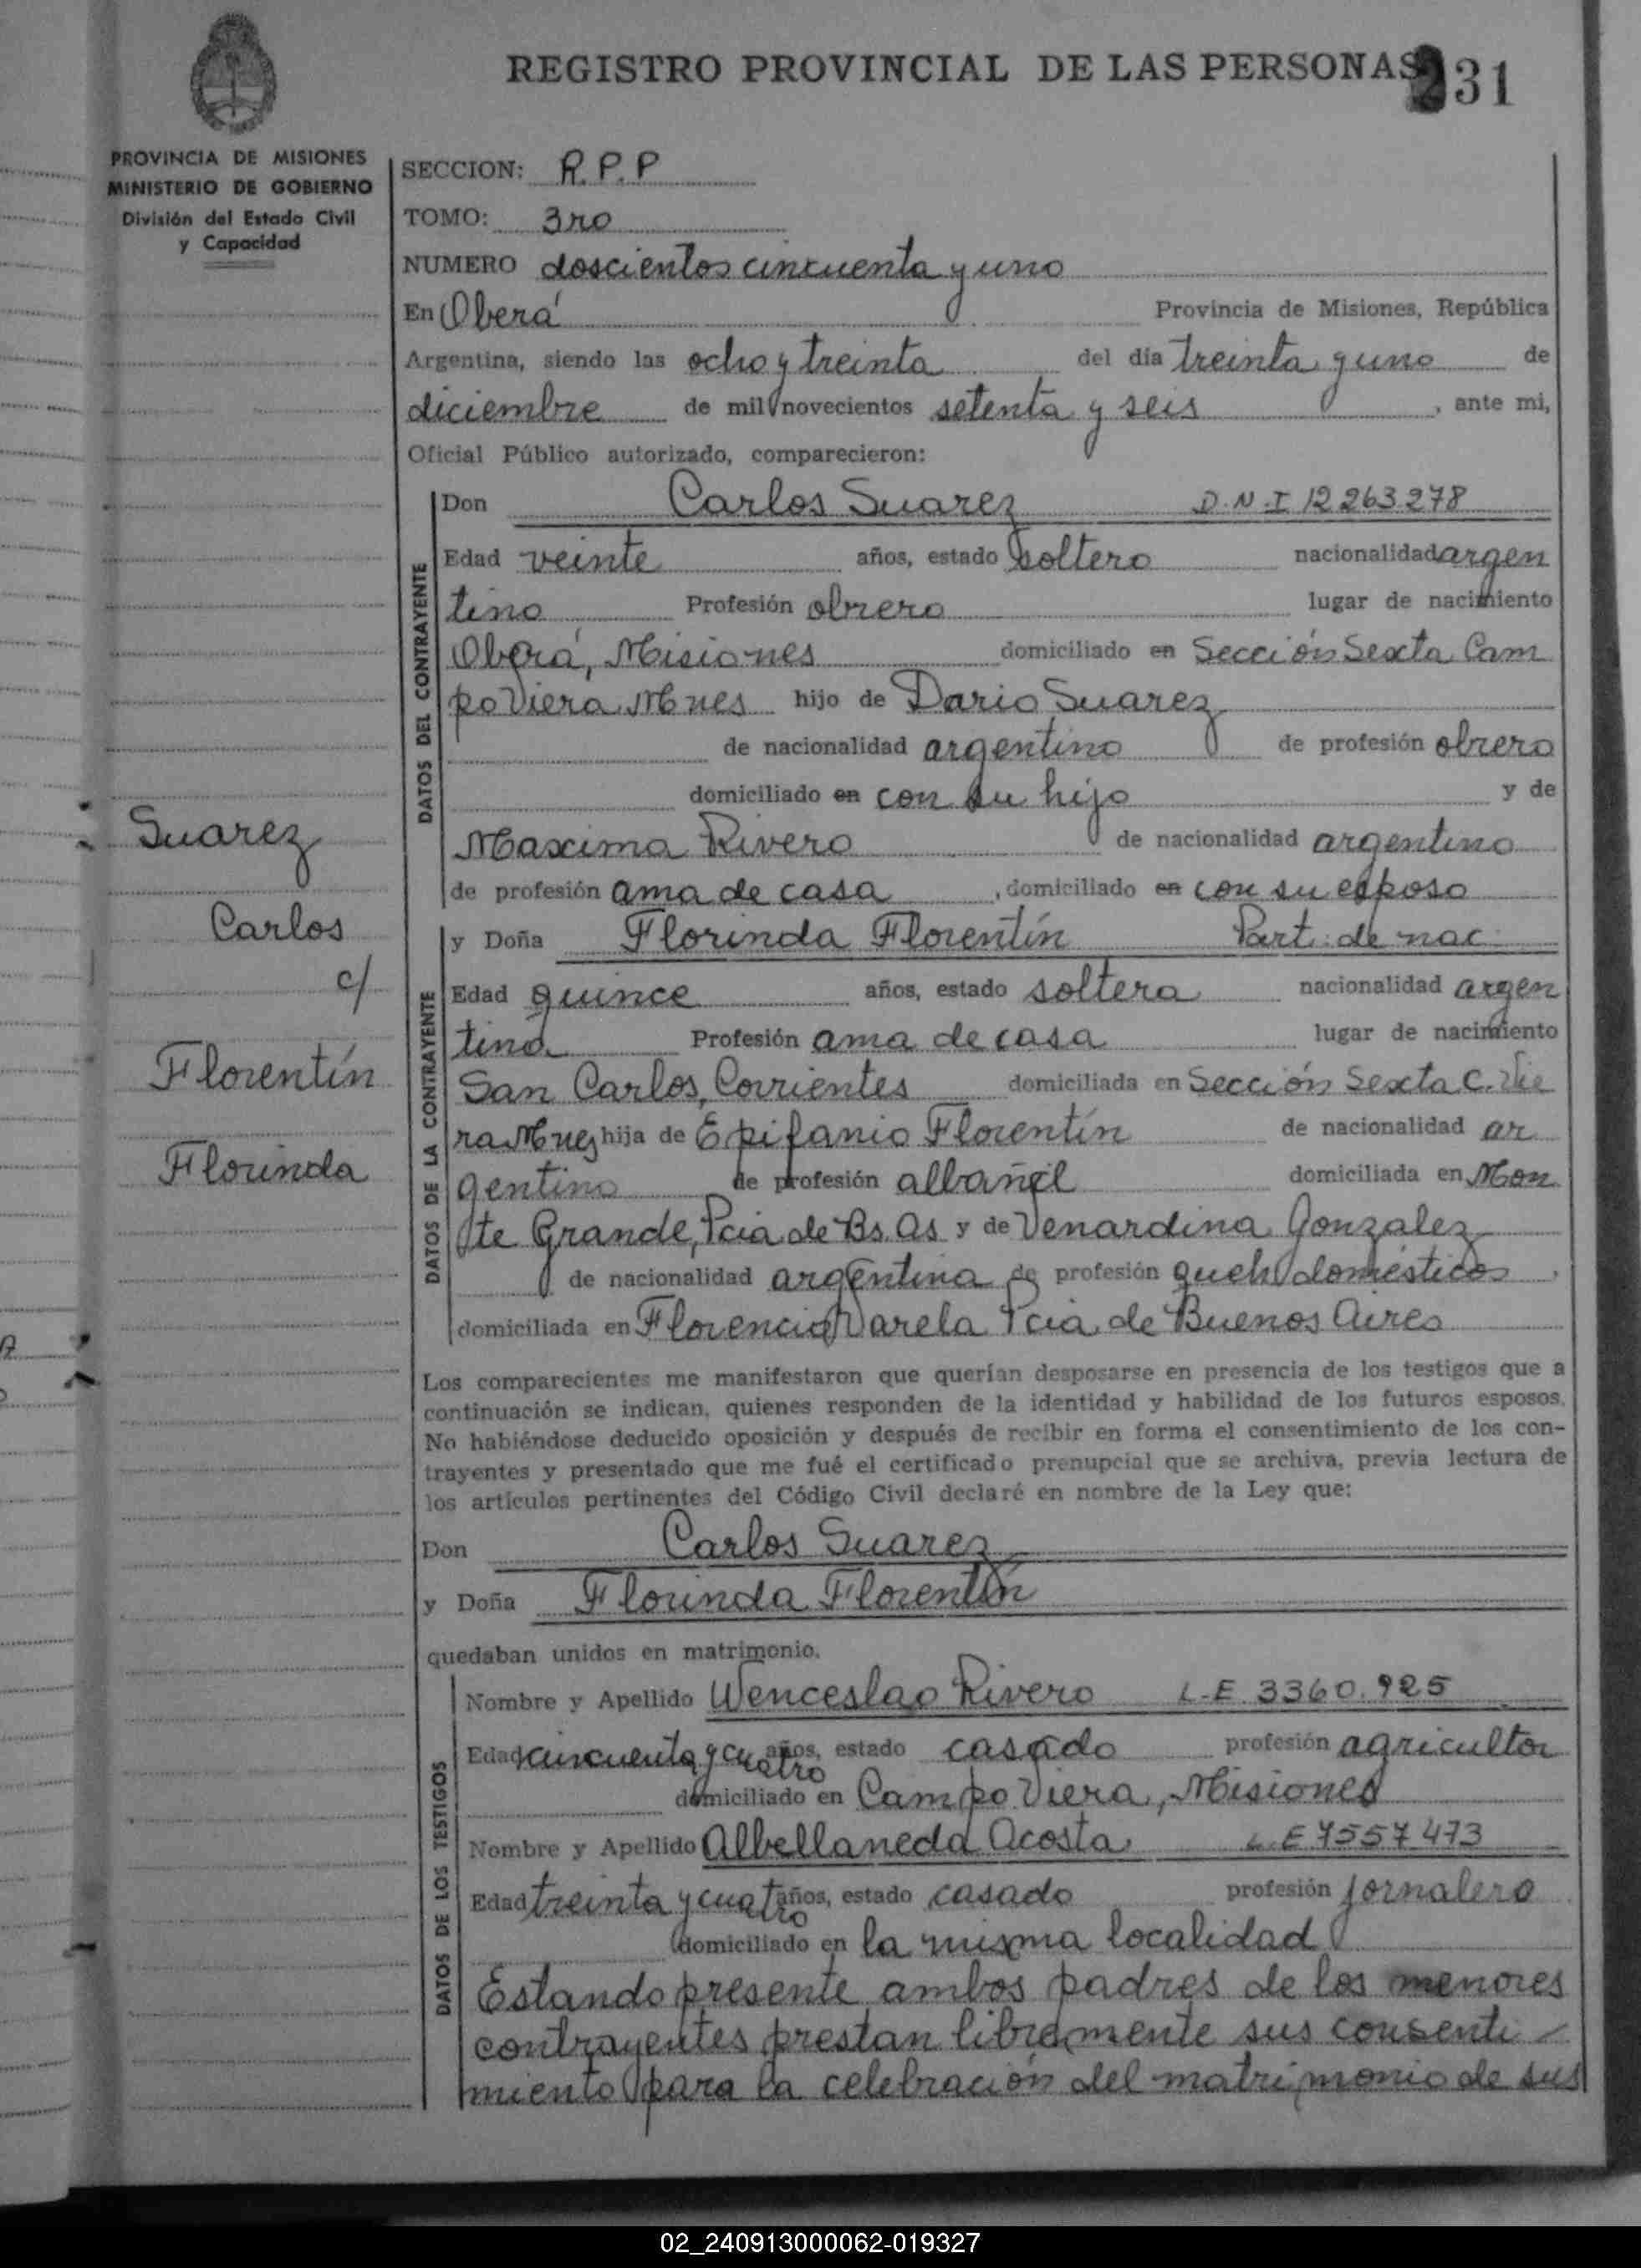 REGISTRO PROVINCIAL DE LAS PERSONAS 231
PROVINCIA DE MISIONES
MINISTERIO DE GOBIERNO
División del Estado Civil
y Capacidad
SECCION: R.P.P
TOMO: 3ro
NUMERO doscientos cincuenta y uno
En Oberá Provincia de Misiones, República
Argentina, siendo las ocho y treinta del día treinta y uno de
diciembre de mil novecientos setenta y seis, ante mi,
Oficial Público autorizado, comparecieron:
DATOS DEL CONTRAYENTE
Don Carlos Suarez D.N.I 12263278
Edad veinte años, estado soltero nacionalidad argen
tino Profesión obrero lugar de nacimiento
Oberá, Misiones domiciliado en Sección Sexta Cam
po Viera Mnes hijo de Dario Suarez
de nacionalidad argentino de profesión obrero
domiciliado en con su hijo y de
Maxima Rivero de nacionalidad argentino
de profesión ama de casa, domiciliado en con su esposo
Suarez
Carlos
c/
Florentín
Florinda
DATOS DE LA CONTRAYENTE
y Doña Florinda Florentín Part. de nac.
Edad quince años, estado soltera nacionalidad argen
tina Profesión ama de casa lugar de nacimiento
San Carlos, Corrientes domiciliada en Sección Sexta C. Vie
ra Mnes hija de Epifanio Florentín de nacionalidad ar
gentino de profesión albañil domiciliada en Mon
te Grande, Pcia de Bs. As y de Venardina Gonzalez
de nacionalidad argentina de profesión queh domésticos,
domiciliada en Florencio Varela Pcia de Buenos Aires
Los comparecientes me manifestaron que querían desposarse en presencia de los testigos que a
continuación se indican, quienes responden de la identidad y habilidad de los futuros esposos.
No habiéndose deducido oposición y después de recibir en forma el consentimiento de los con-
trayentes y presentado que me fué el certificado prenupcial que se archiva, previa lectura de
los artículos pertinentes del Código Civil declaré en nombre de la Ley que:
Don Carlos Suarez
y Doña Florinda Florentín
quedaban unidos en matrimonio.
DATOS DE LOS TESTIGOS
Nombre y Apellido Wenceslao Rivero L.E. 3360.925
Edad cincuenta y cuatro años, estado casado profesión agricultor
domiciliado en Campo Viera, Misiones
Nombre y Apellido Albellaneda Acosta L.E 7557473
Edad treinta y cuatro años, estado casado profesión jornalero
domiciliado en la misma localidad
Estando presente ambos padres de los menores
contrayentes prestan libremente sus consenti-
miento para la celebración del matrimonio de sus
02_240913000062-019327